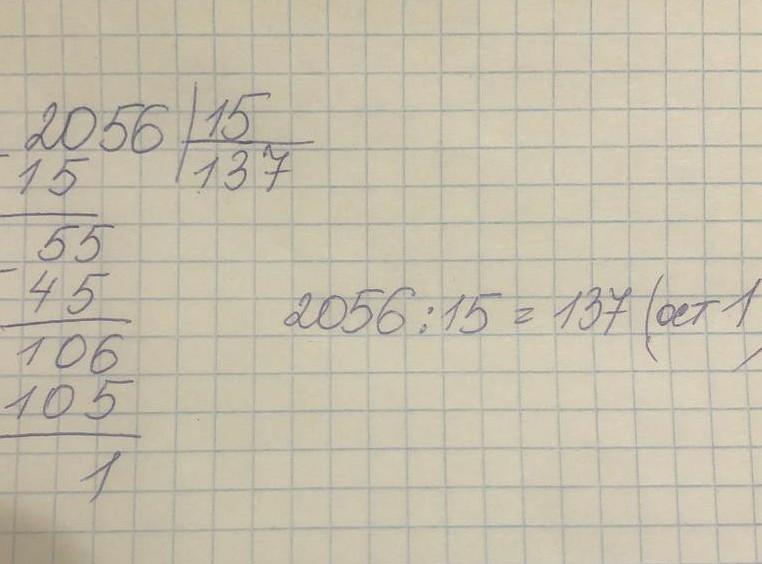 2056 | 15
- 15 | 137
55
- 45
106
105
1
2056 : 15 = 137 (ост 1)